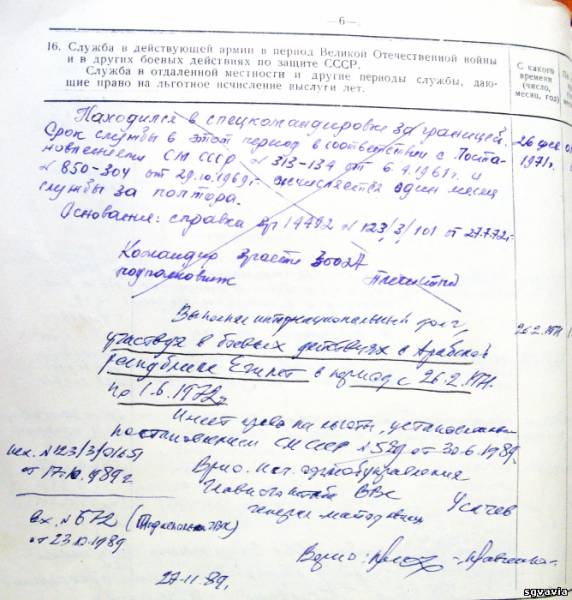 —6—
16. Служба в действующей армии в период Великой Отечественной войны
и в других боевых действиях по защите СССР.
Служба в отдаленной местности и другие периоды службы, даю-
щие право на льготное исчисление выслуги лет.
С какого
времени
(число,
месяц, год)
Находился в спецкомандировке за границей.
Срок службы в этот период в соответствии с Поста-
новлением СМ СССР № 313-134 от 6.4.1961г. и
№ 850-304 от 29.10.1969г. исчисляется один месяц
службы за полтора.
26 фев
1971г.
Основание: справка 14792 № 123/3/101 от 27.7.72г.
Командир части
подполковник
Выполняя интернациональный долг,
26.2.1971
участвовал в боевых действиях в Арабской
республике Египет в период с 26.2.1971.
по 1.6.1972г.
Имеет право на льготы, установленные
постановлением СМ СССР № 529 от 30.6.1989.
исх. № 123/3/0/651
от 17.10.1989г
Врио. нач. управления
Главного штаба ВВС
генерал-майор авиации
Усачев
вх. № 672
от 23.10.1989.
Верно:
27.11.89г.
sgvavia